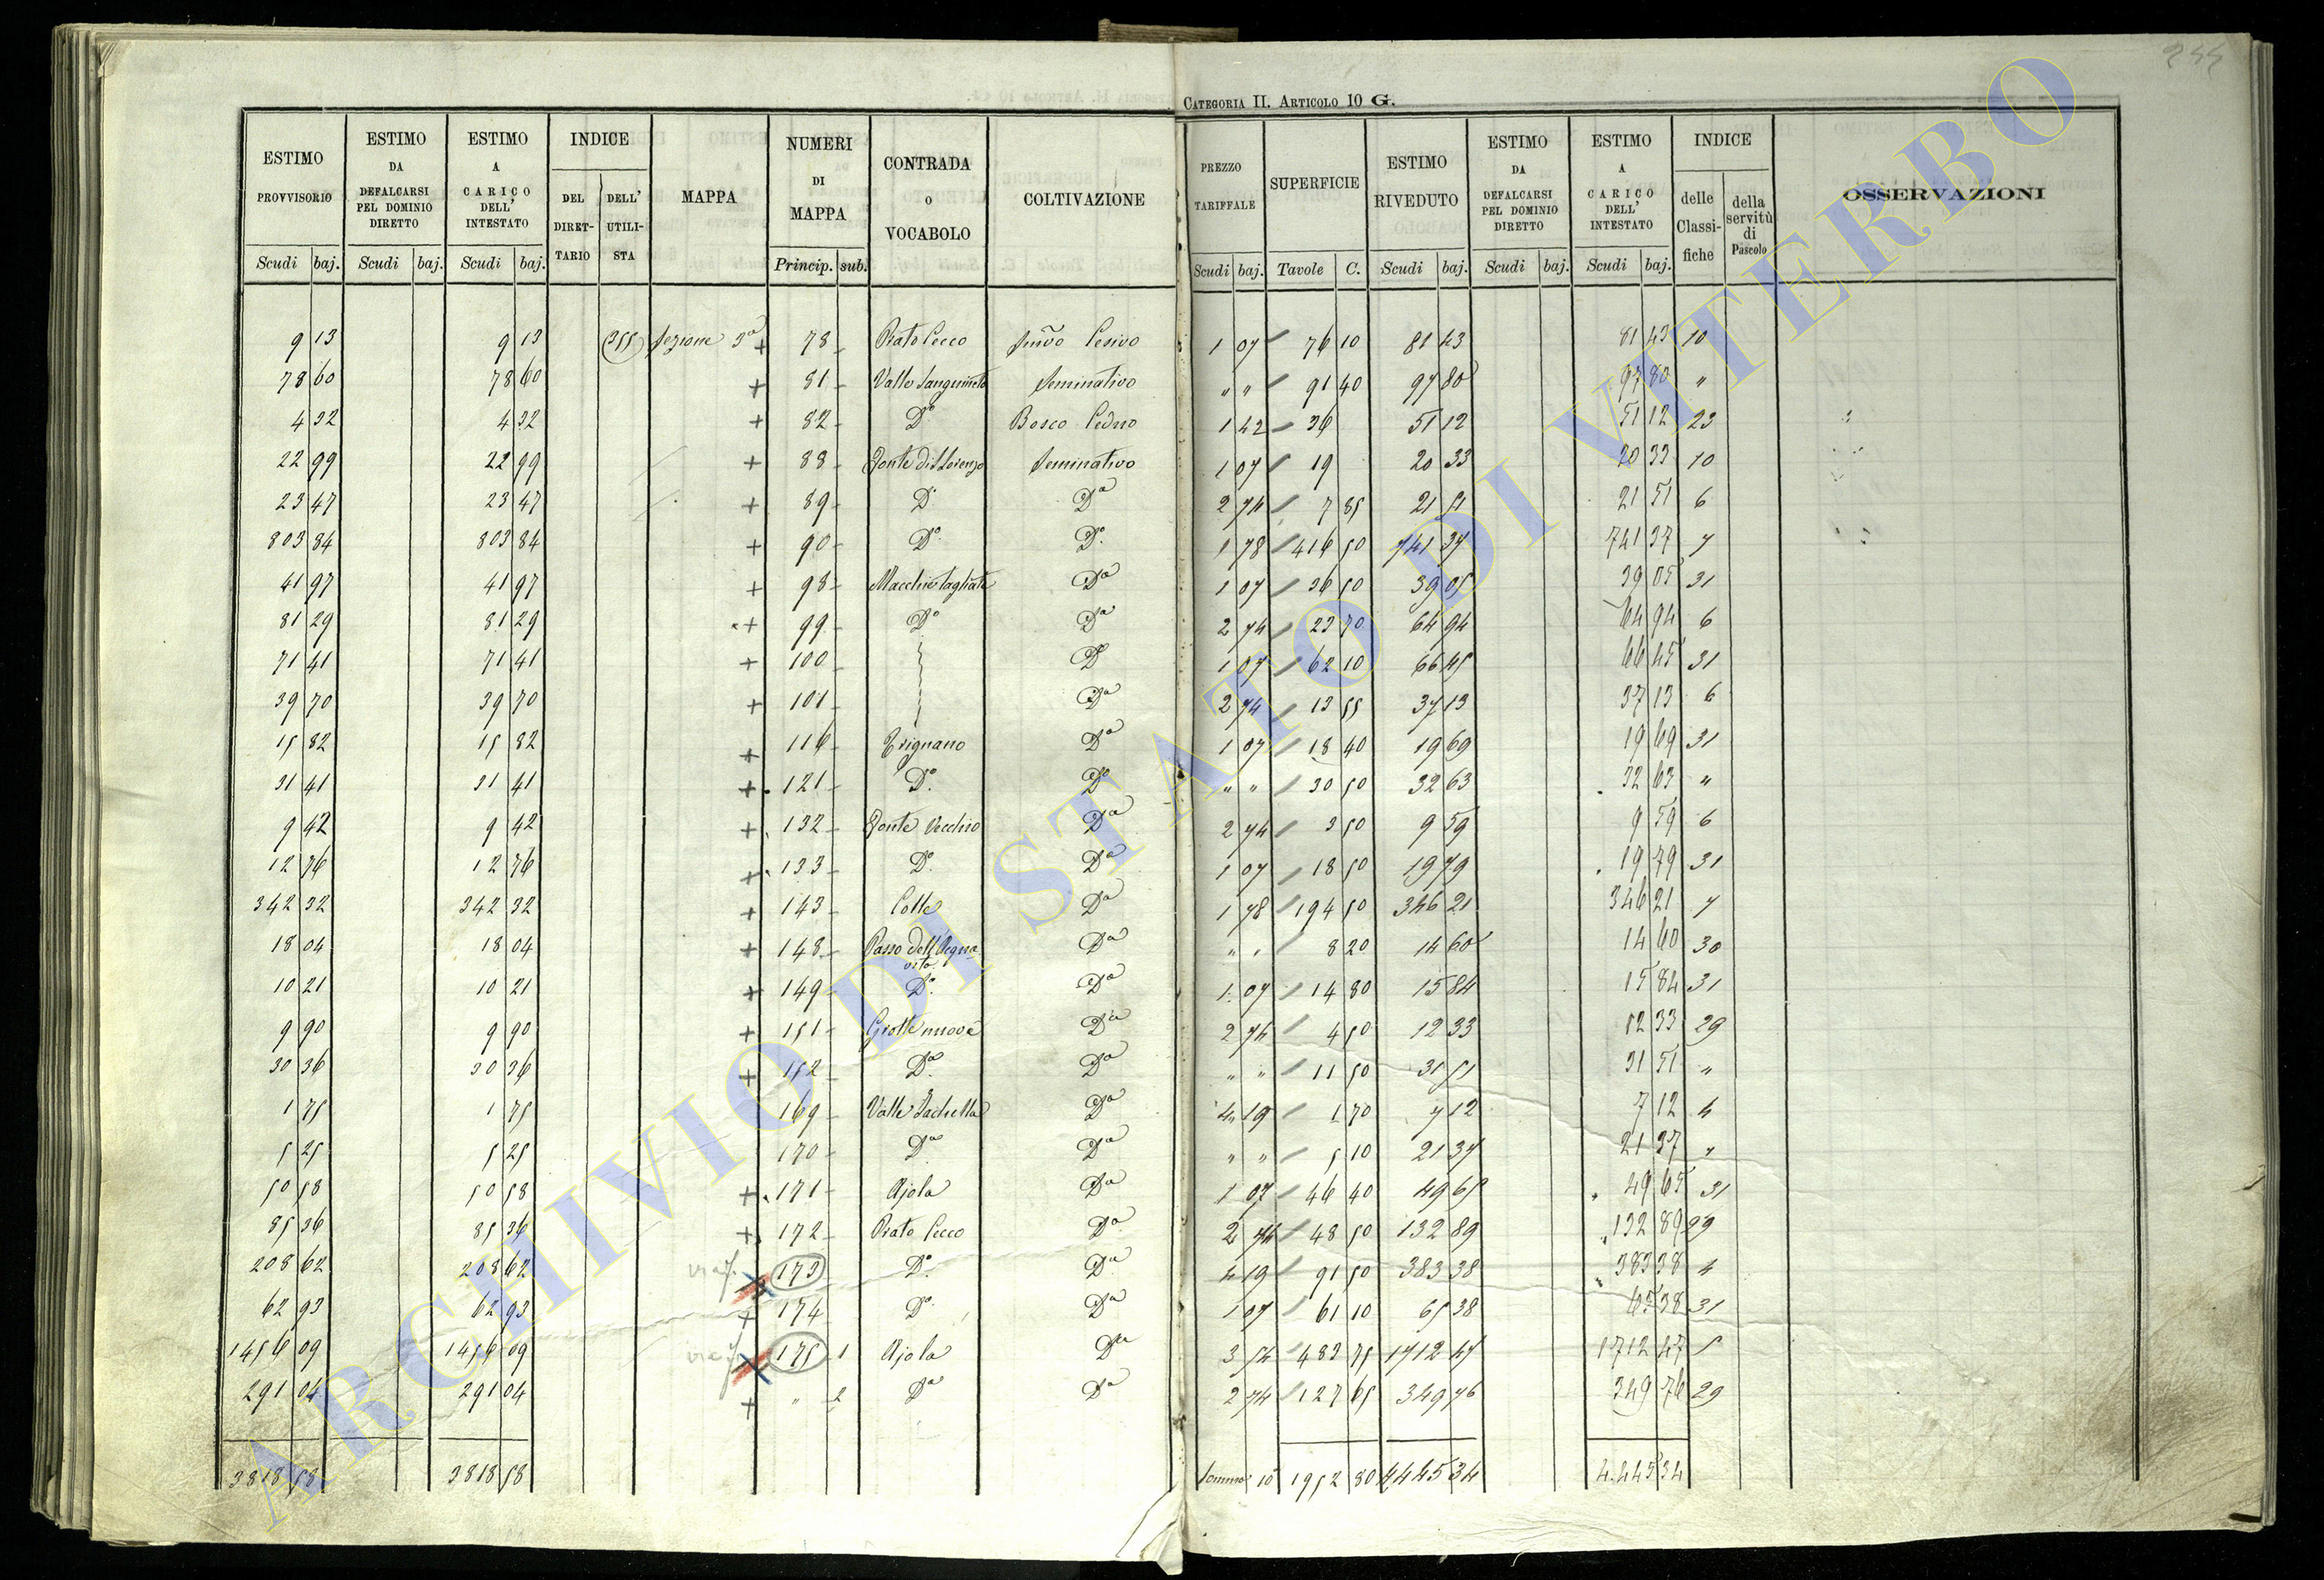 244
CATEGORIA II. ARTICOLO 10 G.
ESTIMO PROVVISORIO | ESTIMO DA DEFALCARSI PEL DOMINIO DIRETTO | ESTIMO A CARICO DELL' INTESTATO | INDICE DEL DIRETTARIO | DELL' UTILISTA | MAPPA | NUMERI DI MAPPA | CONTRADA O VOCABOLO | COLTIVAZIONE | PREZZO TARIFFALE | SUPERFICIE | ESTIMO RIVEDUTO | ESTIMO DA DEFALCARSI PEL DOMINIO DIRETTO | ESTIMO A CARICO DELL' INTESTATO | INDICE delle Classifiche | della servitù di Pascolo | OSSERVAZIONI
Scudi baj. | Scudi baj. | Scudi baj. | Princip. sub. | Scudi baj. | Tavole C. | Scudi baj. | Scudi baj. | Scudi baj.
9 13 | 9 13 | 355 | Sezione 3a + | 78 | Prato Cecco | 1 07 | 76 10 | 81 43 | 81 43 | 10
78 60 | 78 60 | + | 81 | Valle Sanguineto | Seminativo | " " | 91 40 | 97 80 | 97 80 | "
4 32 | 4 32 | + | 82 | Do | Bosco Ceduo | 1 42 | 36 | 51 12 | 51 12 | 23
22 99 | 22 99 | + | 88 | Seminativo | 1 07 | 19 | 20 33 | 20 33 | 10
23 47 | 23 47 | + | 89 | Do | Da | 2 74 | 7 85 | 21 51 | 21 51 | 6
803 84 | 803 84 | + | 90 | Do | Do | 1 78 | 416 50 | 741 37 | 741 37 | 7
41 97 | 41 97 | + | 98 | Macchie tagliate | Da | 1 07 | 36 50 | 39 05 | 39 05 | 31
81 29 | 81 29 | + | 99 | Do | Da | 2 74 | 23 70 | 64 94 | 64 94 | 6
71 41 | 71 41 | + | 100 | Do | 1 07 | 62 10 | 66 45 | 66 45 | 31
39 70 | 39 70 | + | 101 | Da | 2 74 | 13 55 | 37 13 | 37 13 | 6
15 82 | 15 82 | + | 116 | Trignano | Da | 1 07 | 18 40 | 19 69 | 19 69 | 31
31 41 | 31 41 | + | 121 | Do | Do | " " | 30 50 | 32 63 | 32 63 | "
9 42 | 9 42 | + | 132 | Fonte Vecchio | Da | 2 74 | 3 50 | 9 59 | 9 59 | 6
12 76 | 12 76 | + | 133 | Do | Da | 1 07 | 18 50 | 19 79 | 19 79 | 31
342 32 | 342 32 | + | 143 | Colle | Da | 1 78 | 194 50 | 346 21 | 346 21 | 7
18 04 | 18 04 | + | 148 | Passo dell'Acquavita | Da | " " | 8 20 | 14 60 | 14 60 | 30
10 21 | 10 21 | + | 149 | Do | Da | 1 07 | 14 80 | 15 84 | 15 84 | 31
9 90 | 9 90 | + | 151 | Grotte nuove | Da | 2 74 | 4 50 | 12 33 | 12 33 | 29
30 36 | 30 36 | + | 152 | Da | Da | " " | 11 50 | 31 51 | 31 51 | "
1 75 | 1 75 | 169 | Valle | Da | 4 19 | 1 70 | 7 12 | 7 12 | 4
5 25 | 5 25 | 170 | Da | Da | " " | 5 10 | 21 37 | 21 37 | "
50 58 | 50 58 | + | 171 | Ajola | Da | 1 07 | 46 40 | 49 65 | 49 65 | 31
85 36 | 85 36 | + | 172 | Prato Cecco | Da | 2 74 | 48 50 | 132 89 | 132 89 | 29
208 62 | 208 62 | 173 | Do | Da | 4 19 | 91 50 | 383 38 | 383 38 | 4
62 93 | 62 93 | + | 174 | Do | Da | 1 07 | 61 10 | 65 38 | 65 38 | 31
1456 09 | 1456 09 | 175 1 | Ajola | Da | 3 54 | 483 75 | 1712 47 | 1712 47 | 5
291 04 | 291 04 | + | " 2 | Da | Da | 2 74 | 127 65 | 349 76 | 349 76 | 29
3818 58 | 3818 58 | 1952 80 | 4445 34 | 4445 34
ARCHIVIO DI STATO DI VITERBO